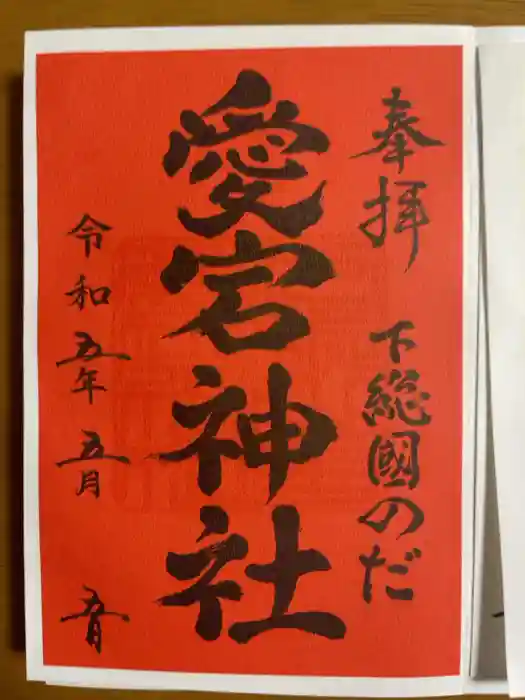 奉拝 下総國のだ
愛宕神社
令和五年 五月 五日